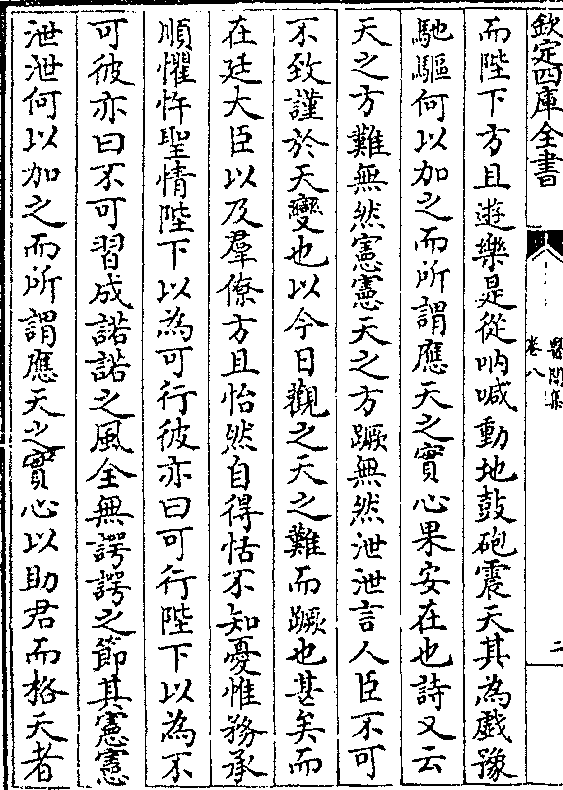 欽定四庫全書
醫閭集
卷八
二
而陛下方且遊樂是從吶喊動地鼓砲震天其為戲豫
馳驅何以加之而所謂應天之實心果安在也詩又云
天之方難無然憲憲天之方蹶無然泄泄言人臣不可
不致謹於天變也以今日觀之天之難而蹶也甚矣而
在廷大臣以及羣僚方且怡然自得恬不知憂惟務承
順懼忤聖情陛下以為可行彼亦曰可行陛下以為不
可彼亦曰不可習成諾諾之風全無諤諤之節其憲憲
泄泄何以加之而所謂應天之實心以助君而格天者